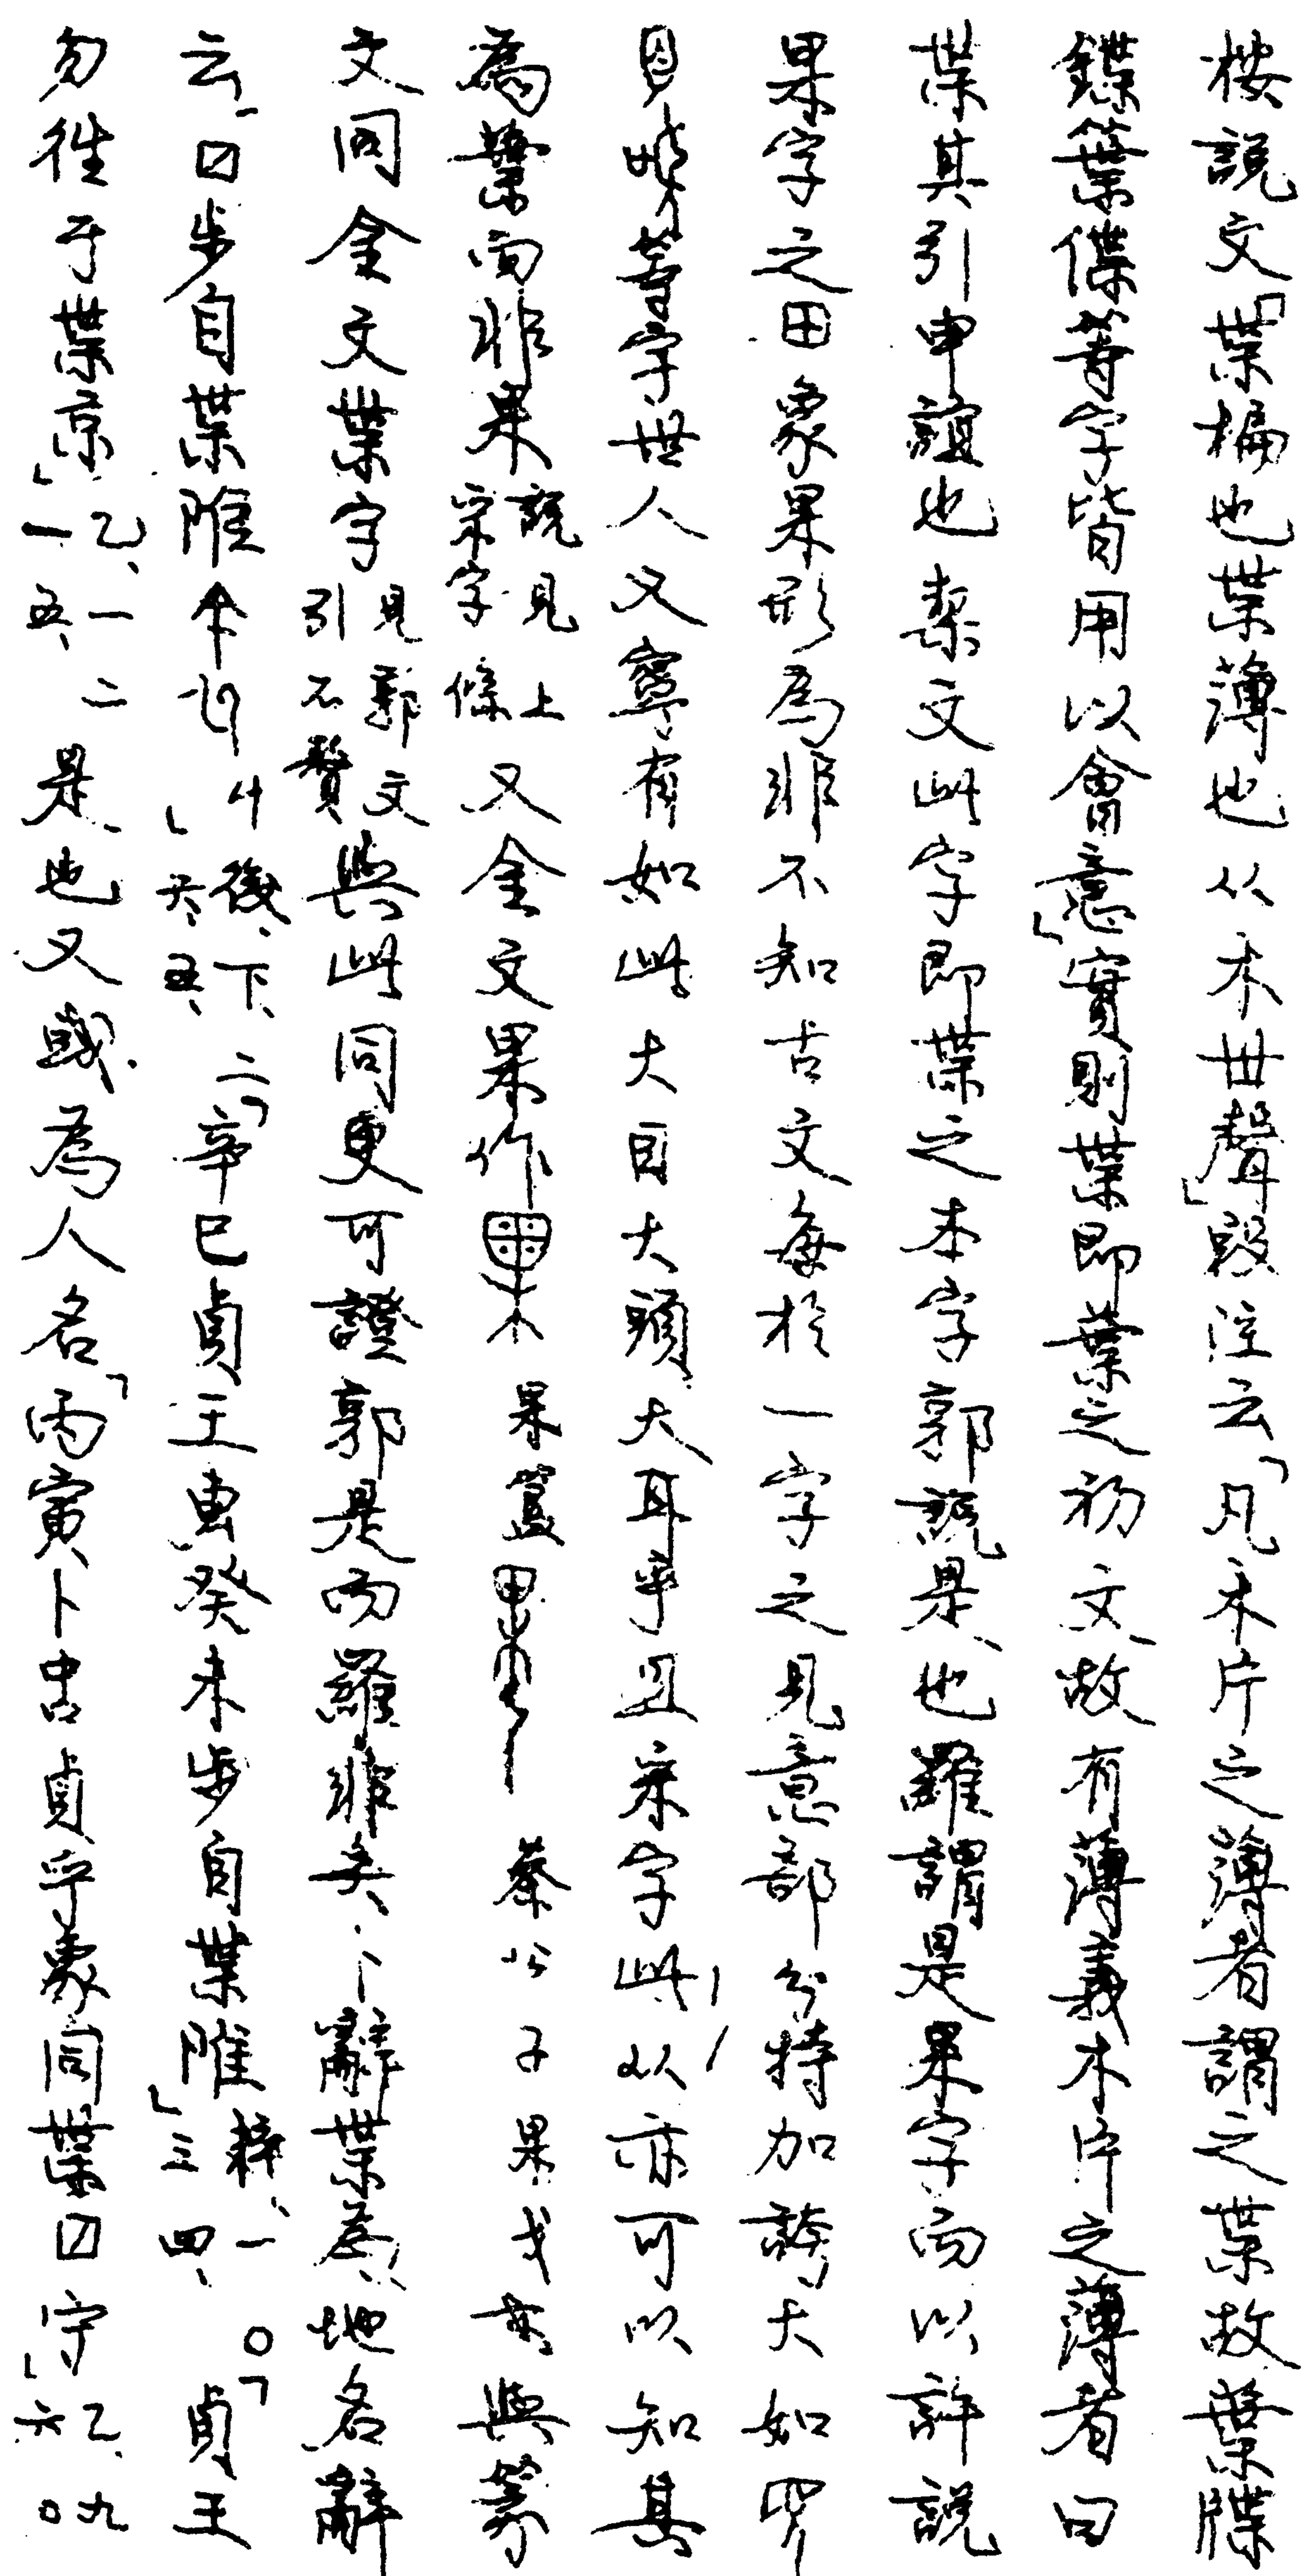 桉說文「枼楄也枼薄也从木丗聲」段注云「凡木片之薄者謂之枼故葉牒
鍱葉偞等字皆用以會意」實則枼即葉之初文故有薄義木片之薄者曰
枼其引申誼也栔文此字即枼之本字郭說是也羅謂是果字而以許說
果字之田象果形為非不知古文每於一字之見意部分特加誇大如
見等字世人又寧有如此大目大頭大耳乎且宋字此以亦可以知其
為枼而非果說見上宋字條又金文果作果簋蔡公子果戈與篆
文同金文枼字見郭文引不贅與此同更可證郭是而羅非矣卜辭枼為地名辭
云「囗步自枼隹」後、下、二六、五、「辛巳貞王叀癸未步自枼隹」粹、一〇三四、「貞王
勿往于枼京」乙、一二一五、是也又或為人名「丙寅卜𠱠貞乎象同枼囗宁」乙、九六〇